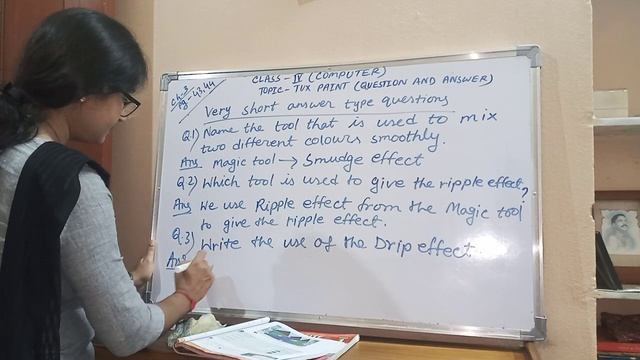 Ch-3
Pg-43,44
CLASS - IV (COMPUTER)
TOPIC- TUX PAINT (QUESTION AND ANSWER)
Very short answer type questions
Q.1) Name the tool that is used to mix
two different colours smoothly.
Ans Magic tool → Smudge effect
Q.2) Which tool is used to give the ripple effect?
Ans We use Ripple effect from the Magic tool
to give the ripple effect.
Q.3) Write the use of the Drip effect.
Ans